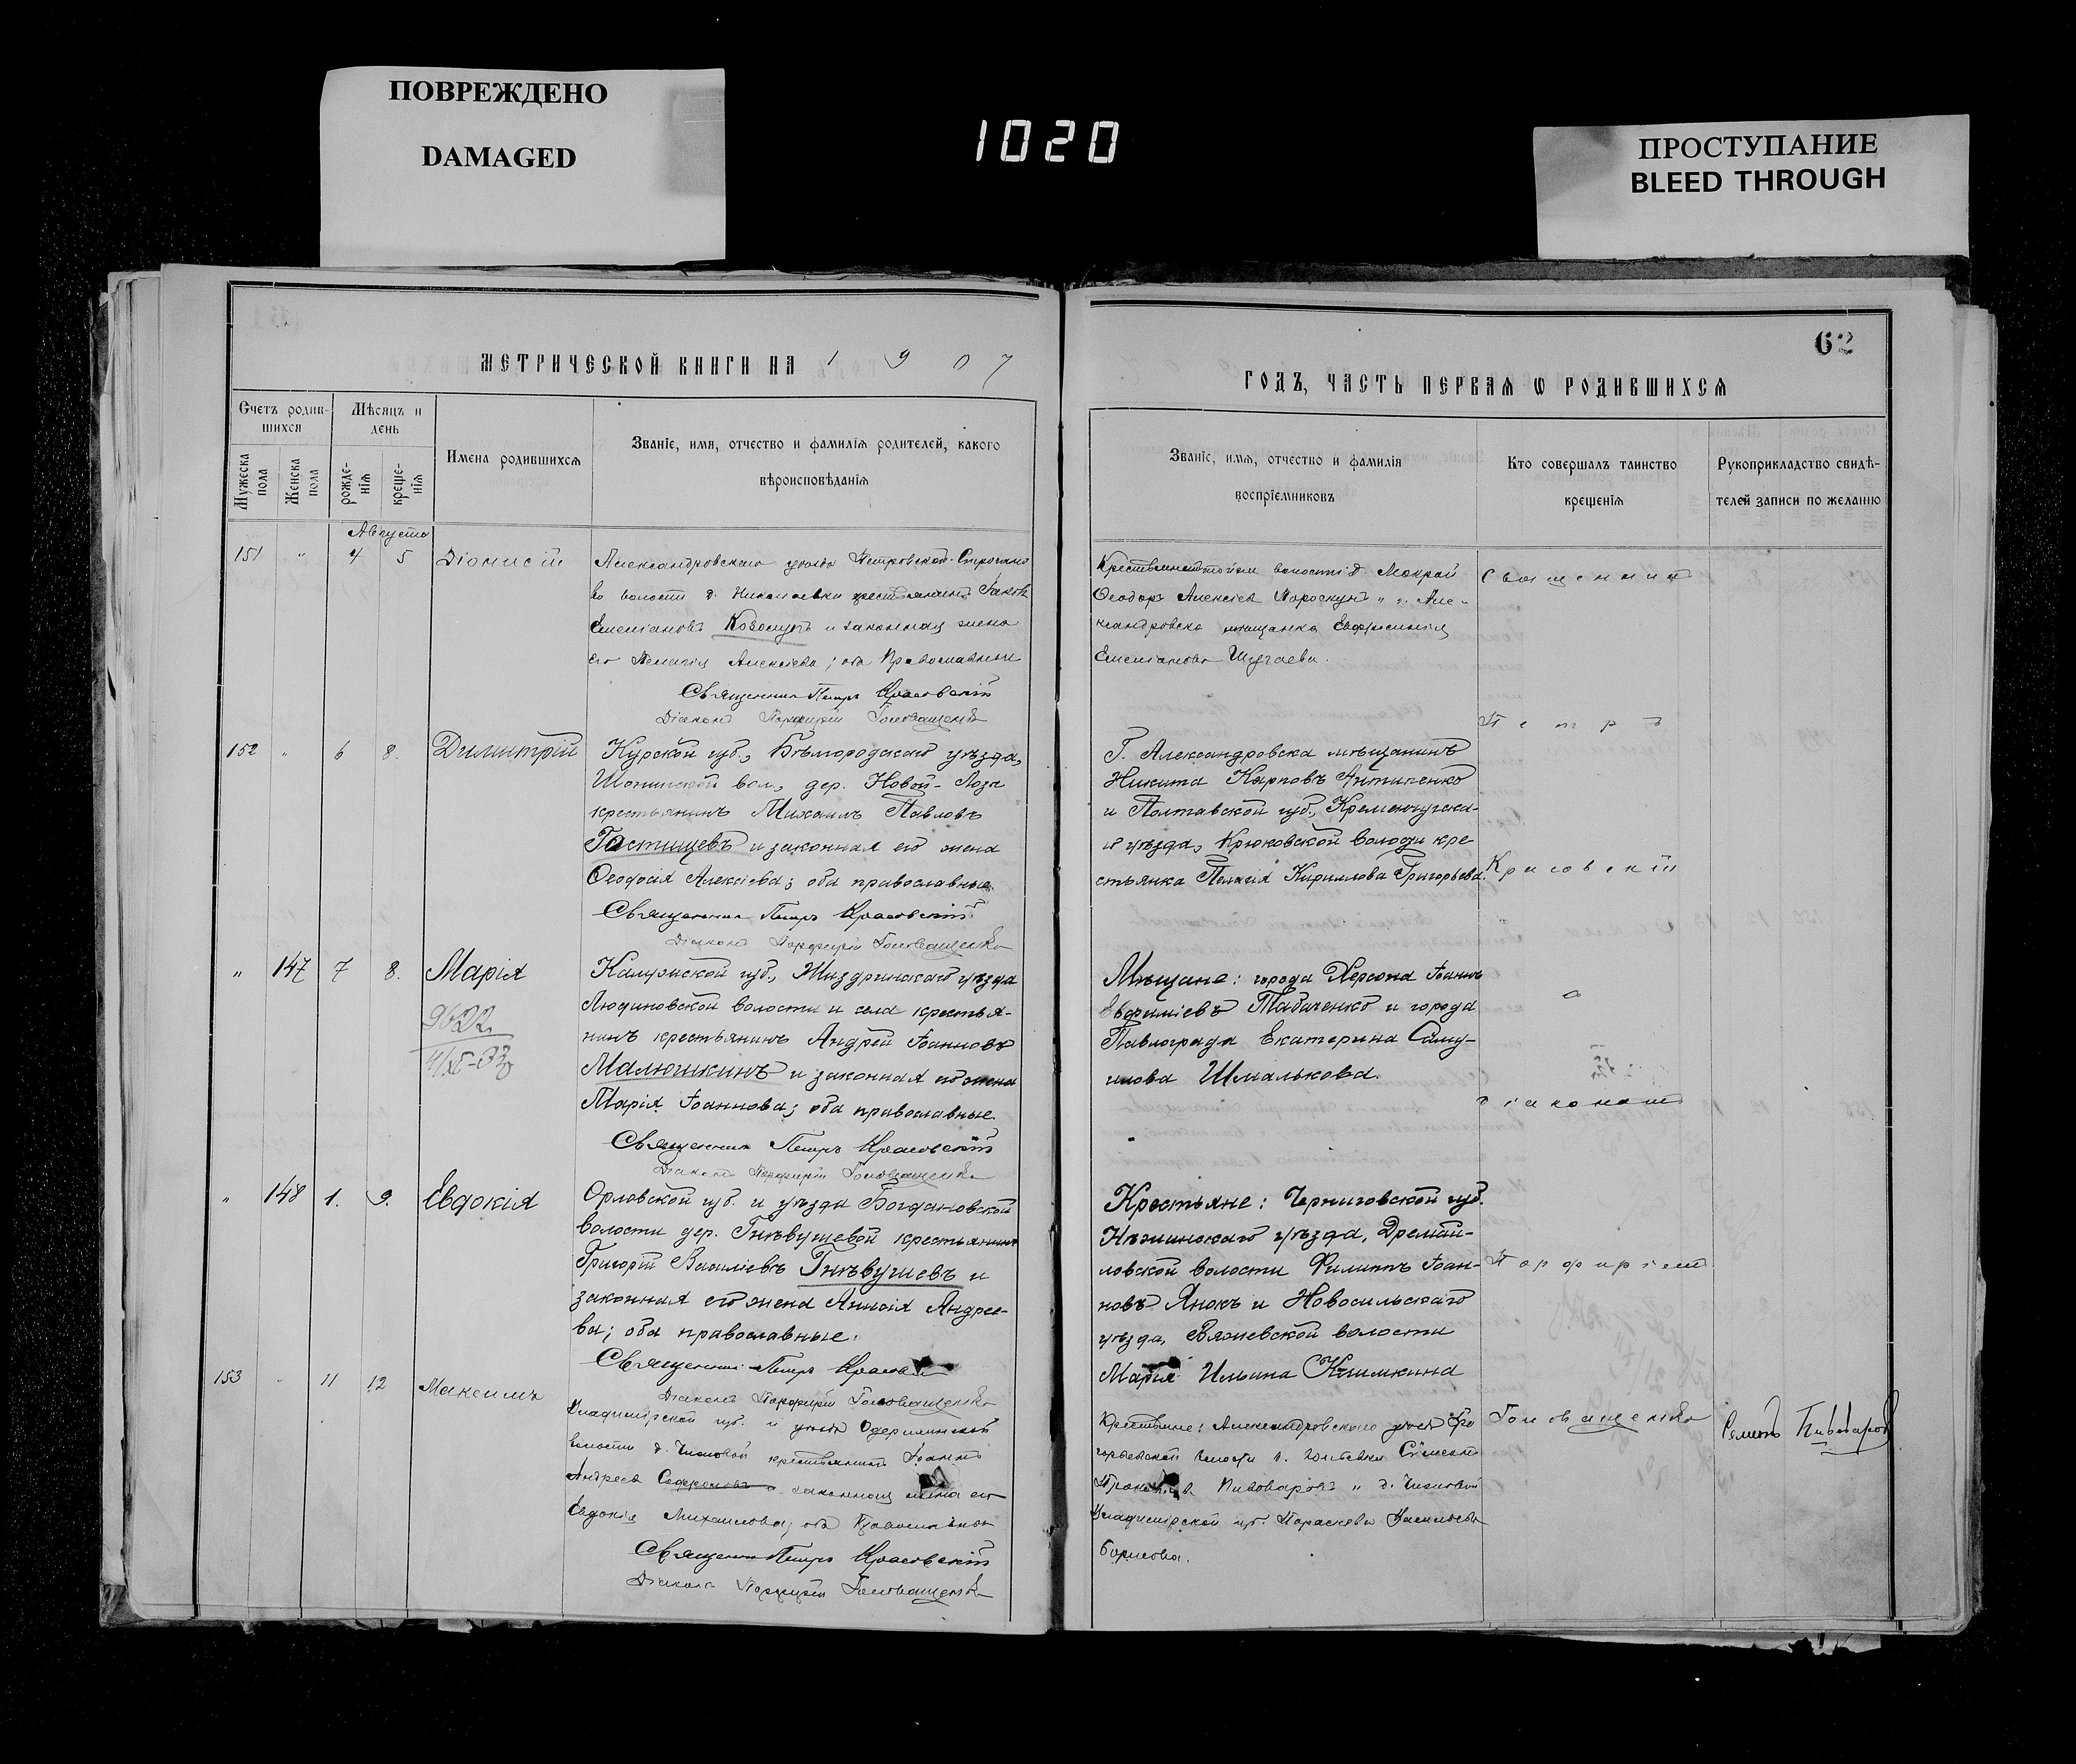 ПОВРЕЖДЕНО
DAMAGED
1020
ПРОСТУПАНИЕ
BLEED THROUGH
МЕТРИЧЕСКОЙ КНИГИ НА 1907
Счетъ родив-
шихся
Мѣсяцъ и
день
Мужеска
пола
Женска
пола
рожде-
нія
креще-
нія
Имена родившихся
Званіе, имя, отчество и фамилія родителей, какого
вѣроисповѣданія
Августа
151 " 4 5 Діонисій
Александровскаго уѣзда Петровской-
волости д. Николаевки крестьянинъ Іаковъ
Емеліановъ и законная жена
его Пелагія Алексіева; оба Православные
Священникъ Петръ Красовскій
Діаконъ Порфирій Головащенко
152 " 6 8. Димитрій
Курской губ., Бѣлгородскаго уѣзда,
вол., дер. Новой-Лозы
крестьянинъ Михаилъ Павловъ
Гостищевъ и законная его жена
Ѳеодосія Алексіева; оба православные.
Священникъ Петръ Красовскій
Діаконъ Порфирій Головащенко
" 147 7 8. Марія
9622
Калужской губ., Жиздринскаго уѣзда
Людиновской волости и села крестья-
нинъ крестьянинъ Андрей Іоанновъ
Малюшкинъ и законная его жена
Марія Іоаннова; оба православные.
Священникъ Петръ Красовскій
Діаконъ Порфирій Головащенко
" 148 1. 9. Евдокія
Орловской губ. и уѣзда Богдановской
волости дер. Гнѣвушевой крестьянинъ
Григорій Василіевъ Гнѣвушевъ и
законная его жена Анисія Андрее-
ва; оба православные.
Священникъ Петръ
Діаконъ Порфирій Головащенко
153 " 11 12 Максимъ
Владимірской губ. и уѣзда
волости д. крестьянинъ Іоаннъ
Андреевъ Софроновъ и законная жена его
Евдокія Михаилова; оба Православные
Священникъ Петръ Красовскій
Діаконъ Порфирій Головащенко
62
ГОДЪ, ЧАСТЬ ПЕРВАЯ Ѡ РОДИВШИХСЯ
Званіе, имя, отчество и фамилія
воспріемниковъ
Кто совершалъ таинство
крещенія
Рукоприкладство свидѣ-
телей записи по желанію
волости д. Мокрой
Ѳеодоръ Алексіевъ Алек-
сандровска мѣщанка Евфросинія
Емеліанова
Г. Александровска мѣщанинъ
Никита Карповъ Антипенко
и Полтавской губ., Кременчугска-
го уѣзда, Крюковской волости кре-
стьянка Пелагія Кириллова Григорьева.
Мѣщане: города Херсона Іоаннъ
Евфиміевъ Табаченко и города
Павлограда Екатерина Саму-
илова Шмалькова.
Крестьяне: Черниговской губ.
Нѣжинскаго уѣзда, Дремай-
ловской волости Филиппъ Іоан-
новъ Янокъ и Новосильскаго
уѣзда, Вяжевской волости
Марія Ильина
Крестьяне: Александровскаго уѣзда
волости Симеонъ
Пивоваровъ и д.
Владимірской губ. Параскева Васильева
Борисова.
Священникъ
Петръ
Красовскій
съ
діакономъ
Порфиріемъ
Головащенко
Семенъ Пивоваровъ